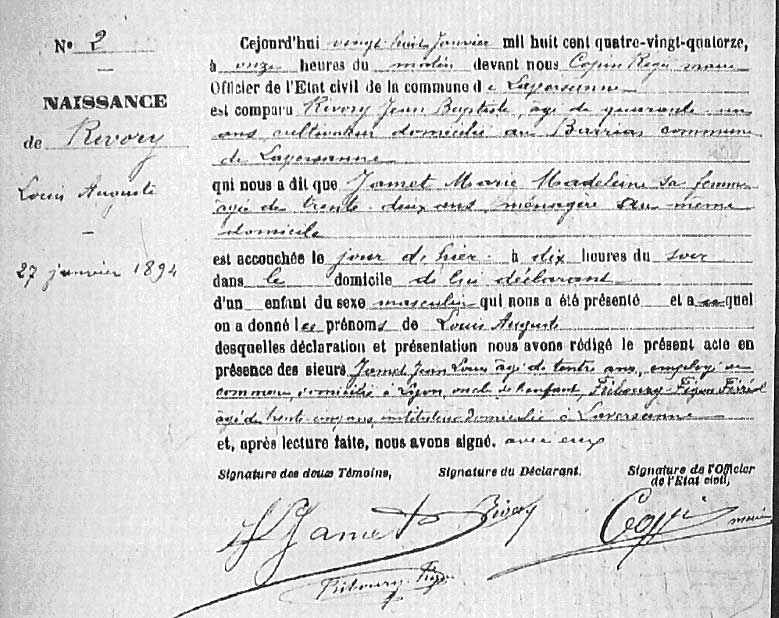 N° 2
NAISSANCE
de Rivory
Louis Auguste
27 janvier 1894
Cejourd'hui vingt huit Janvier mil huit cent quatre-vingt-quatorze,
à onze heures du matin devant nous maire
Officier de l'Etat civil de la commune de
est comparu Rivory Jean Baptiste, âgé de quarante un
ans, cultivateur domicilié au commune
de
qui nous a dit que Jamet Marie Madeleine sa femme
âgée de trente deux ans, ménagère au même
domicile
est accouchée le jour de hier à dix heures du soir
dans le domicile de lui déclarant
d'un enfant du sexe masculin qui nous a été présenté et auquel
on a donné les prénoms de Louis Auguste
desquelles déclaration et présentation nous avons rédigé le présent acte en
présence des sieurs Jamet Jean Louis âgé de trente ans, employé de
commerce, domicilié à Lyon, oncle de l'enfant, Fribourg
âgé de trente cinq ans, instituteur domicilié à
et, après lecture faite, nous avons signé. avec eux
Signature des deux Témoins, Signature du Déclarant. Signature de l'Officier
de l'Etat civil,
Jamet Rivory maire
Fribourg